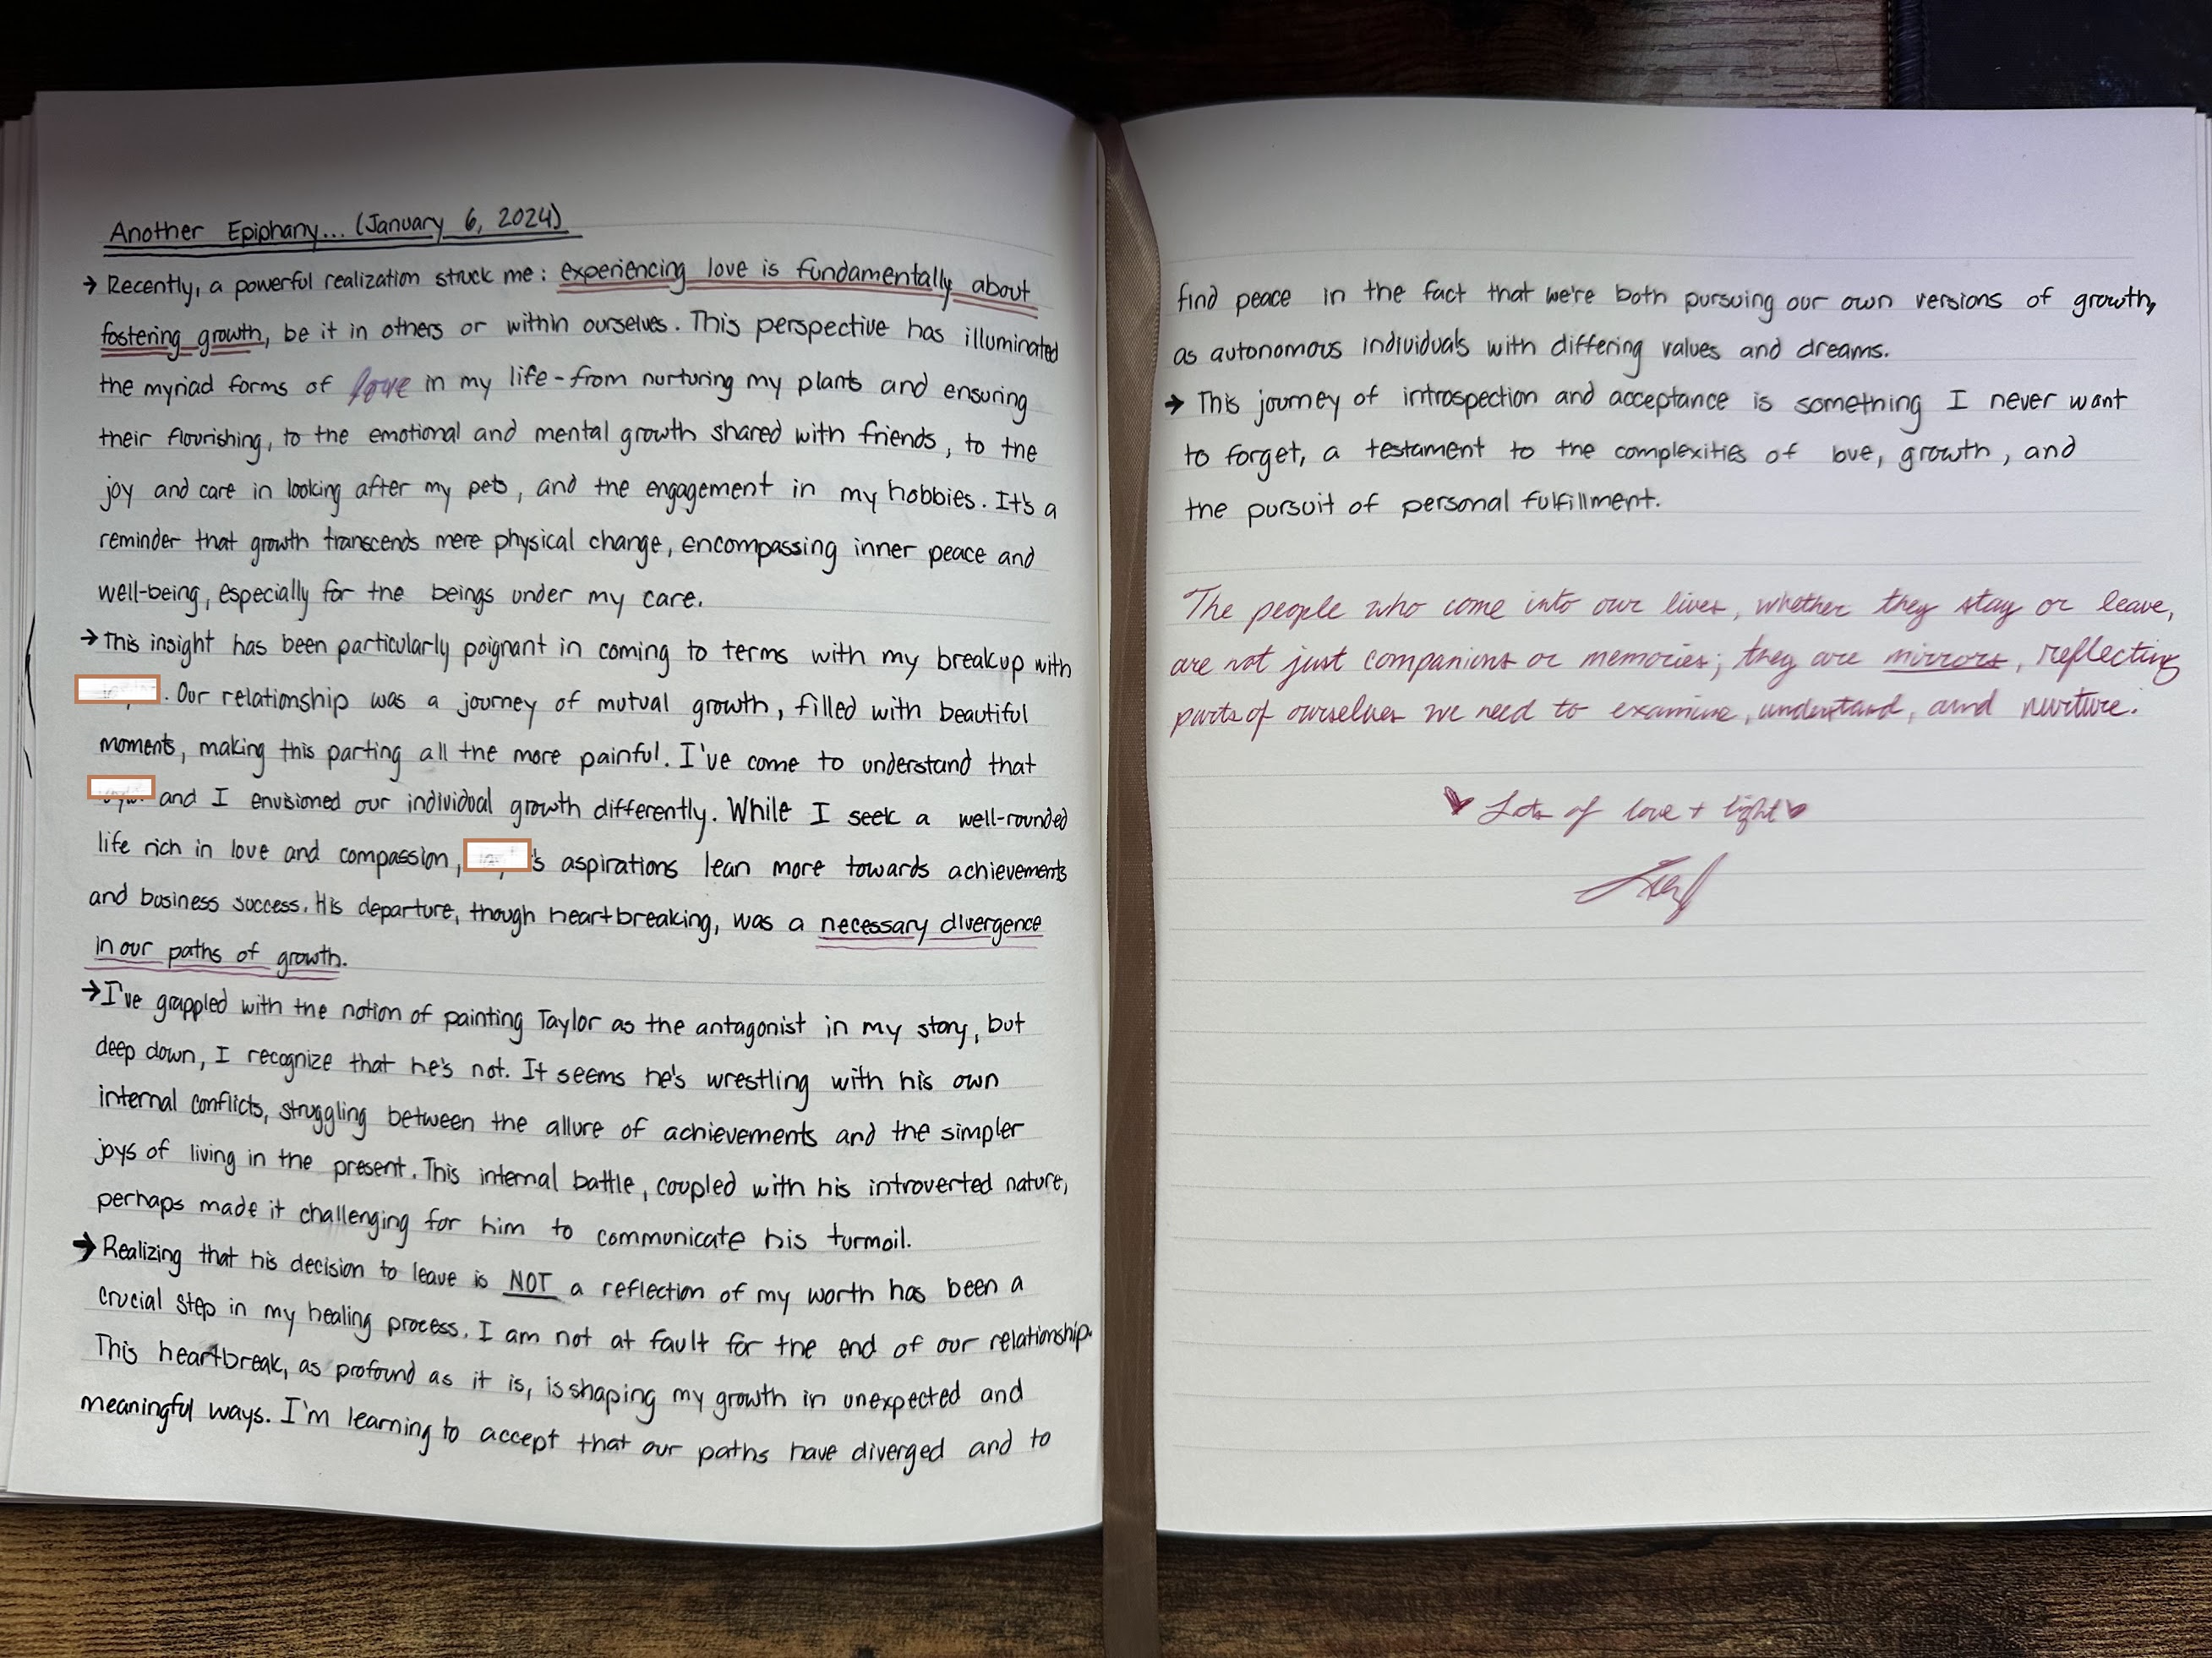 Another Epiphany... (January 6, 2024)
→ Recently, a powerful realization struck me: experiencing love is fundamentally about
fostering growth, be it in others or within ourselves. This perspective has illuminated
the myriad forms of love in my life - from nurturing my plants and ensuring
their flourishing, to the emotional and mental growth shared with friends, to the
joy and care in looking after my pets, and the engagement in my hobbies. It's a
reminder that growth transcends mere physical change, encompassing inner peace and
well-being, especially for the beings under my care.
→ This insight has been particularly poignant in coming to terms with my breakup with
. Our relationship was a journey of mutual growth, filled with beautiful
moments, making this parting all the more painful. I've come to understand that
and I envisioned our individual growth differently. While I seek a well-rounded
life rich in love and compassion, 's aspirations lean more towards achievements
and business success. His departure, though heartbreaking, was a necessary divergence
in our paths of growth.
→ I've grappled with the notion of painting Taylor as the antagonist in my story, but
deep down, I recognize that he's not. It seems he's wrestling with his own
internal conflicts, struggling between the allure of achievements and the simpler
joys of living in the present. This internal battle, coupled with his introverted nature,
perhaps made it challenging for him to communicate his turmoil.
→ Realizing that his decision to leave is NOT a reflection of my worth has been a
crucial step in my healing process. I am not at fault for the end of our relationship.
This heartbreak, as profound as it is, is shaping my growth in unexpected and
meaningful ways. I'm learning to accept that our paths have diverged and to
find peace in the fact that we're both pursuing our own versions of growth,
as autonomous individuals with differing values and dreams.
→ This journey of introspection and acceptance is something I never want
to forget, a testament to the complexities of love, growth, and
the pursuit of personal fulfillment.
The people who come into our lives, whether they stay or leave,
are not just companions or memories; they are mirrors, reflecting
parts of ourselves we need to examine, understand, and nurture.
♥ Lots of love + light ♥